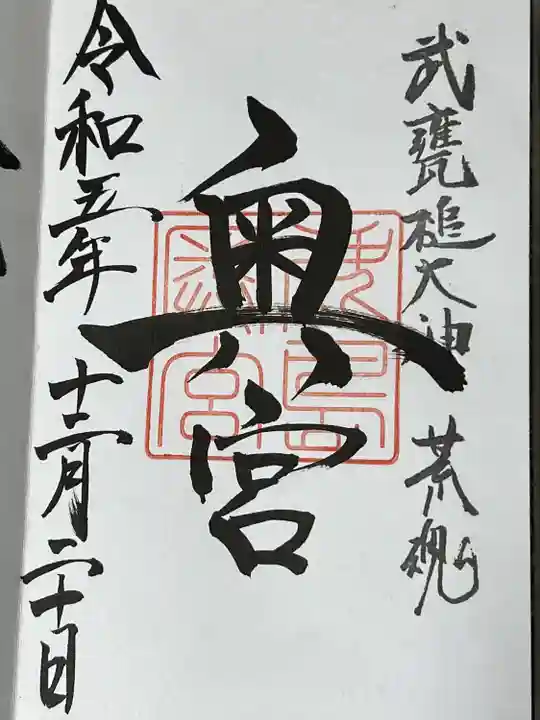 武甕槌大神 荒魂
奥宮
令和五年 十二月二十日